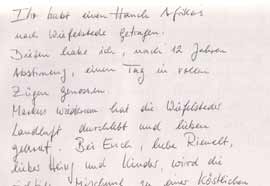 Ihr habt einen Hauch Afrikas
nach Wiefelstede getragen.
Diesen habe ich, nach 12 Jahren
Abstinenz, einen Tag in vollen
Zügen genossen.
Markus wiederum hat die Wiefelsteder
Landluft durchlebt und lieben
gelernt. Bei Euch, liebe
lieber und Kinder, wird die
Mischung zu einer Köstlichen